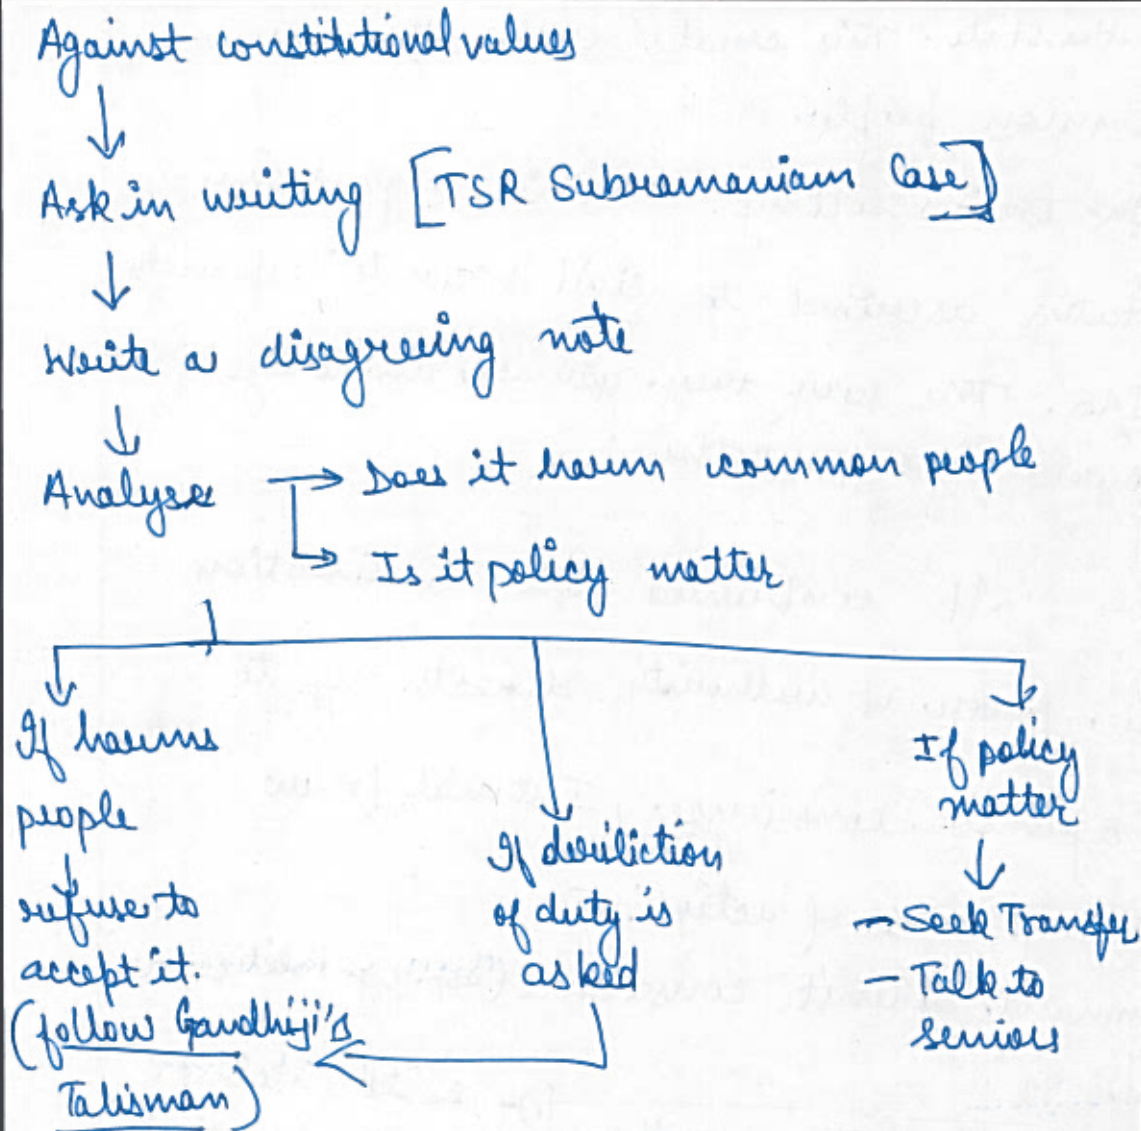 Against constitutional values
Ask in writing [TSR Subramaniam Case]
Write a disagreeing note
Analyse → Does it harm common people
→ Is it policy matter
If harms
people
refuse to
accept it.
(follow Gandhiji's
Talisman)
If deriliction
of duty is
asked
If policy
matter
- Seek Transfer
- Talk to
seniors